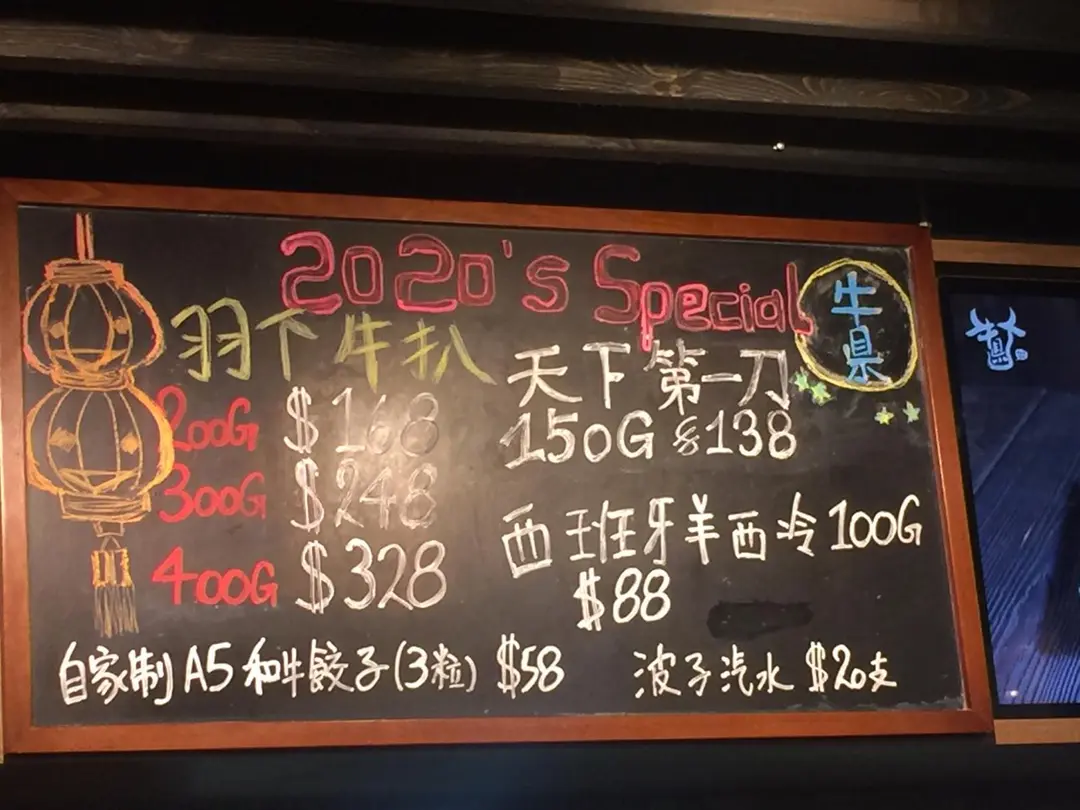 2020's Special
牛
県
羽下牛扒
200G $168
300G $248
400G $328
天下第一刀
150G $138
西班牙羊西冷100G
$88
自家制A5和牛餃子(3粒) $58
波子汽水 $20支